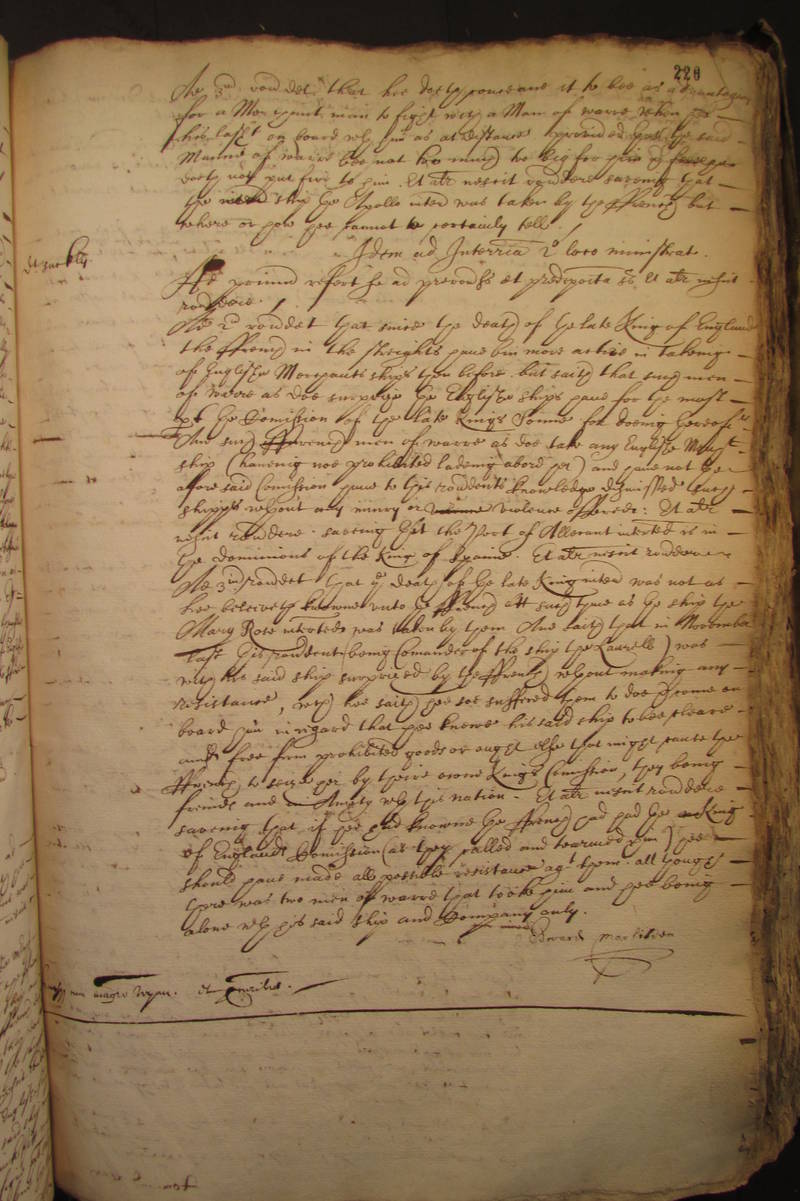 220
He 3rd rondet that hee doth conceave it to bee as advantageous
for a Marchant man to fight with a Man of warre when he
on board with him as at distance provided that the said
Manne of warre bee not too much to big for him
doth not put fire to him. Et alr nescit rondere saveing that
the ship the Apollo inter was taken by the ffrench but
where or how hee cannot certainly tell.
Idem ad Interria 2o loco ministrat.
Ad primum refert se ad precontes et predeposita Et alr nescit
rondere.
Ad 2d rondet that since the death of the late King of England
the ffrench in the streights have bin more active in takeing
of English Marchants ships then before. but saith that such men
of warre as doe surprize the English ships have for the most
pt the Comission of the late Kings Sonne for doeing thereof.
And such ffrench men of warre as doe take any English Marcht
ship (haveing noe prohibited ladeing abord her) and have not the
afore said Comission have to this rondents knowledge dismissed such
shipps without any iniury or violence offered: Et alr
nescit rondere. saveing that the Port of Allecant interted is in
the dominions of the King of Spaine. Et alr nescit rondere
Ad 3um rondet that the death of the late King inter was not as
hee beleiveth knowne unto the ffrench att such tyme as the ship the
Mary Rose interted was taken by them And saith that in November
last this rondent (being Comander of the ship the Laurell) was
with his said ship surprized by the ffrench without making any
resistance, with hee saith hee soe suffered them to doe & come on
board him in regard that hee knewe his said ship to bee cleare
and free from prohibited goods or ought else that might cause the
ffrench to seize her by theire owne Kings Comission, they being
freinds and in Amity with this nation. Et alr nescit rondere
saveing that if hee had knowne the ffrench had had the King
of Englands Comission (as they called and tearmed him) hee
should have made all possible resistance agt them. all though
there was two men of warre that tooke him and hee being
alone with his said ship and Company only.
Edward